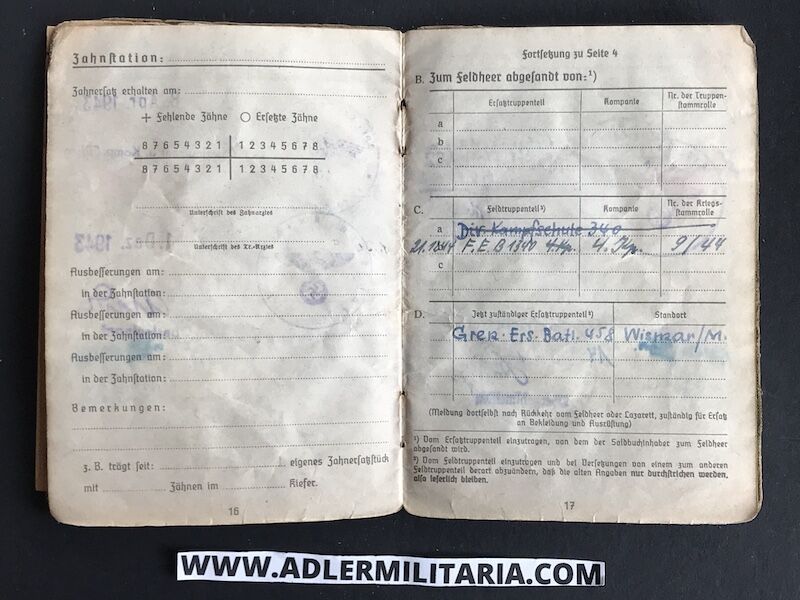 Zahnstation:
Zahnersatz erhalten am:
+ Fehlende Zähne ○ Ersetzte Zähne
8 7 6 5 4 3 2 1 | 1 2 3 4 5 6 7 8
8 7 6 5 4 3 2 1 | 1 2 3 4 5 6 7 8
Unterschrift des Zahnarztes
Unterschrift des Tr.-Arztes
Ausbesserungen am:
in der Zahnstation:
Ausbesserungen am:
in der Zahnstation:
Ausbesserungen am:
in der Zahnstation:
Bemerkungen:
z. B. trägt seit: eigenes Zahnersatzstück
mit Zähnen im Kiefer.
16
Fortsetzung zu Seite 4
B. Zum Feldheer abgesandt von:¹)
Ersatztruppenteil Kompanie Nr. der Truppen-
stammrolle
a
b
c
C. Feldtruppenteil²) Kompanie Nr. der Kriegs-
stammrolle
a Div. Kampfschule 340
F. E. B 1340 4. Kp. 4. Kp. 9/44
c
D. Jetzt zuständiger Ersatztruppenteil²) Standort
Gren. Ers. Batl. 458 Wismar/M.
(Meldung dortselbst nach Rückkehr vom Feldheer oder Lazarett, zuständig für Ersatz
an Bekleidung und Ausrüstung)
¹) Vom Ersatztruppenteil einzutragen, von dem der Soldbuchinhaber zum Feldheer
abgesandt wird.
²) Vom Feldtruppenteil einzutragen und bei Versetzungen von einem zum anderen
Feldtruppenteil derart abzuändern, daß die alten Angaben nur durchstrichen werden,
also leserlich bleiben.
17
WWW.ADLERMILITARIA.COM